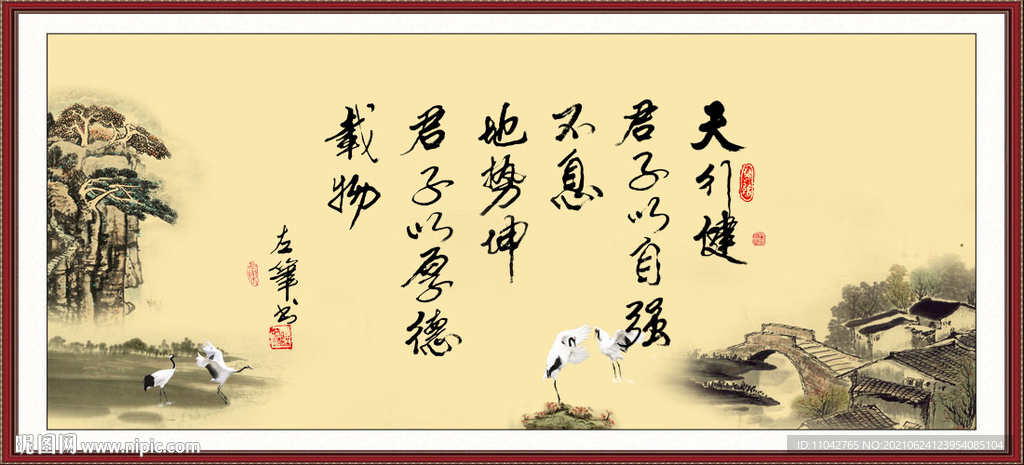 天行健
君子以自强
不息
地势坤
君子以厚德
载物
左笔书
昵图网 www.nipic.com
ID:11042765 NO:20210624123954085104